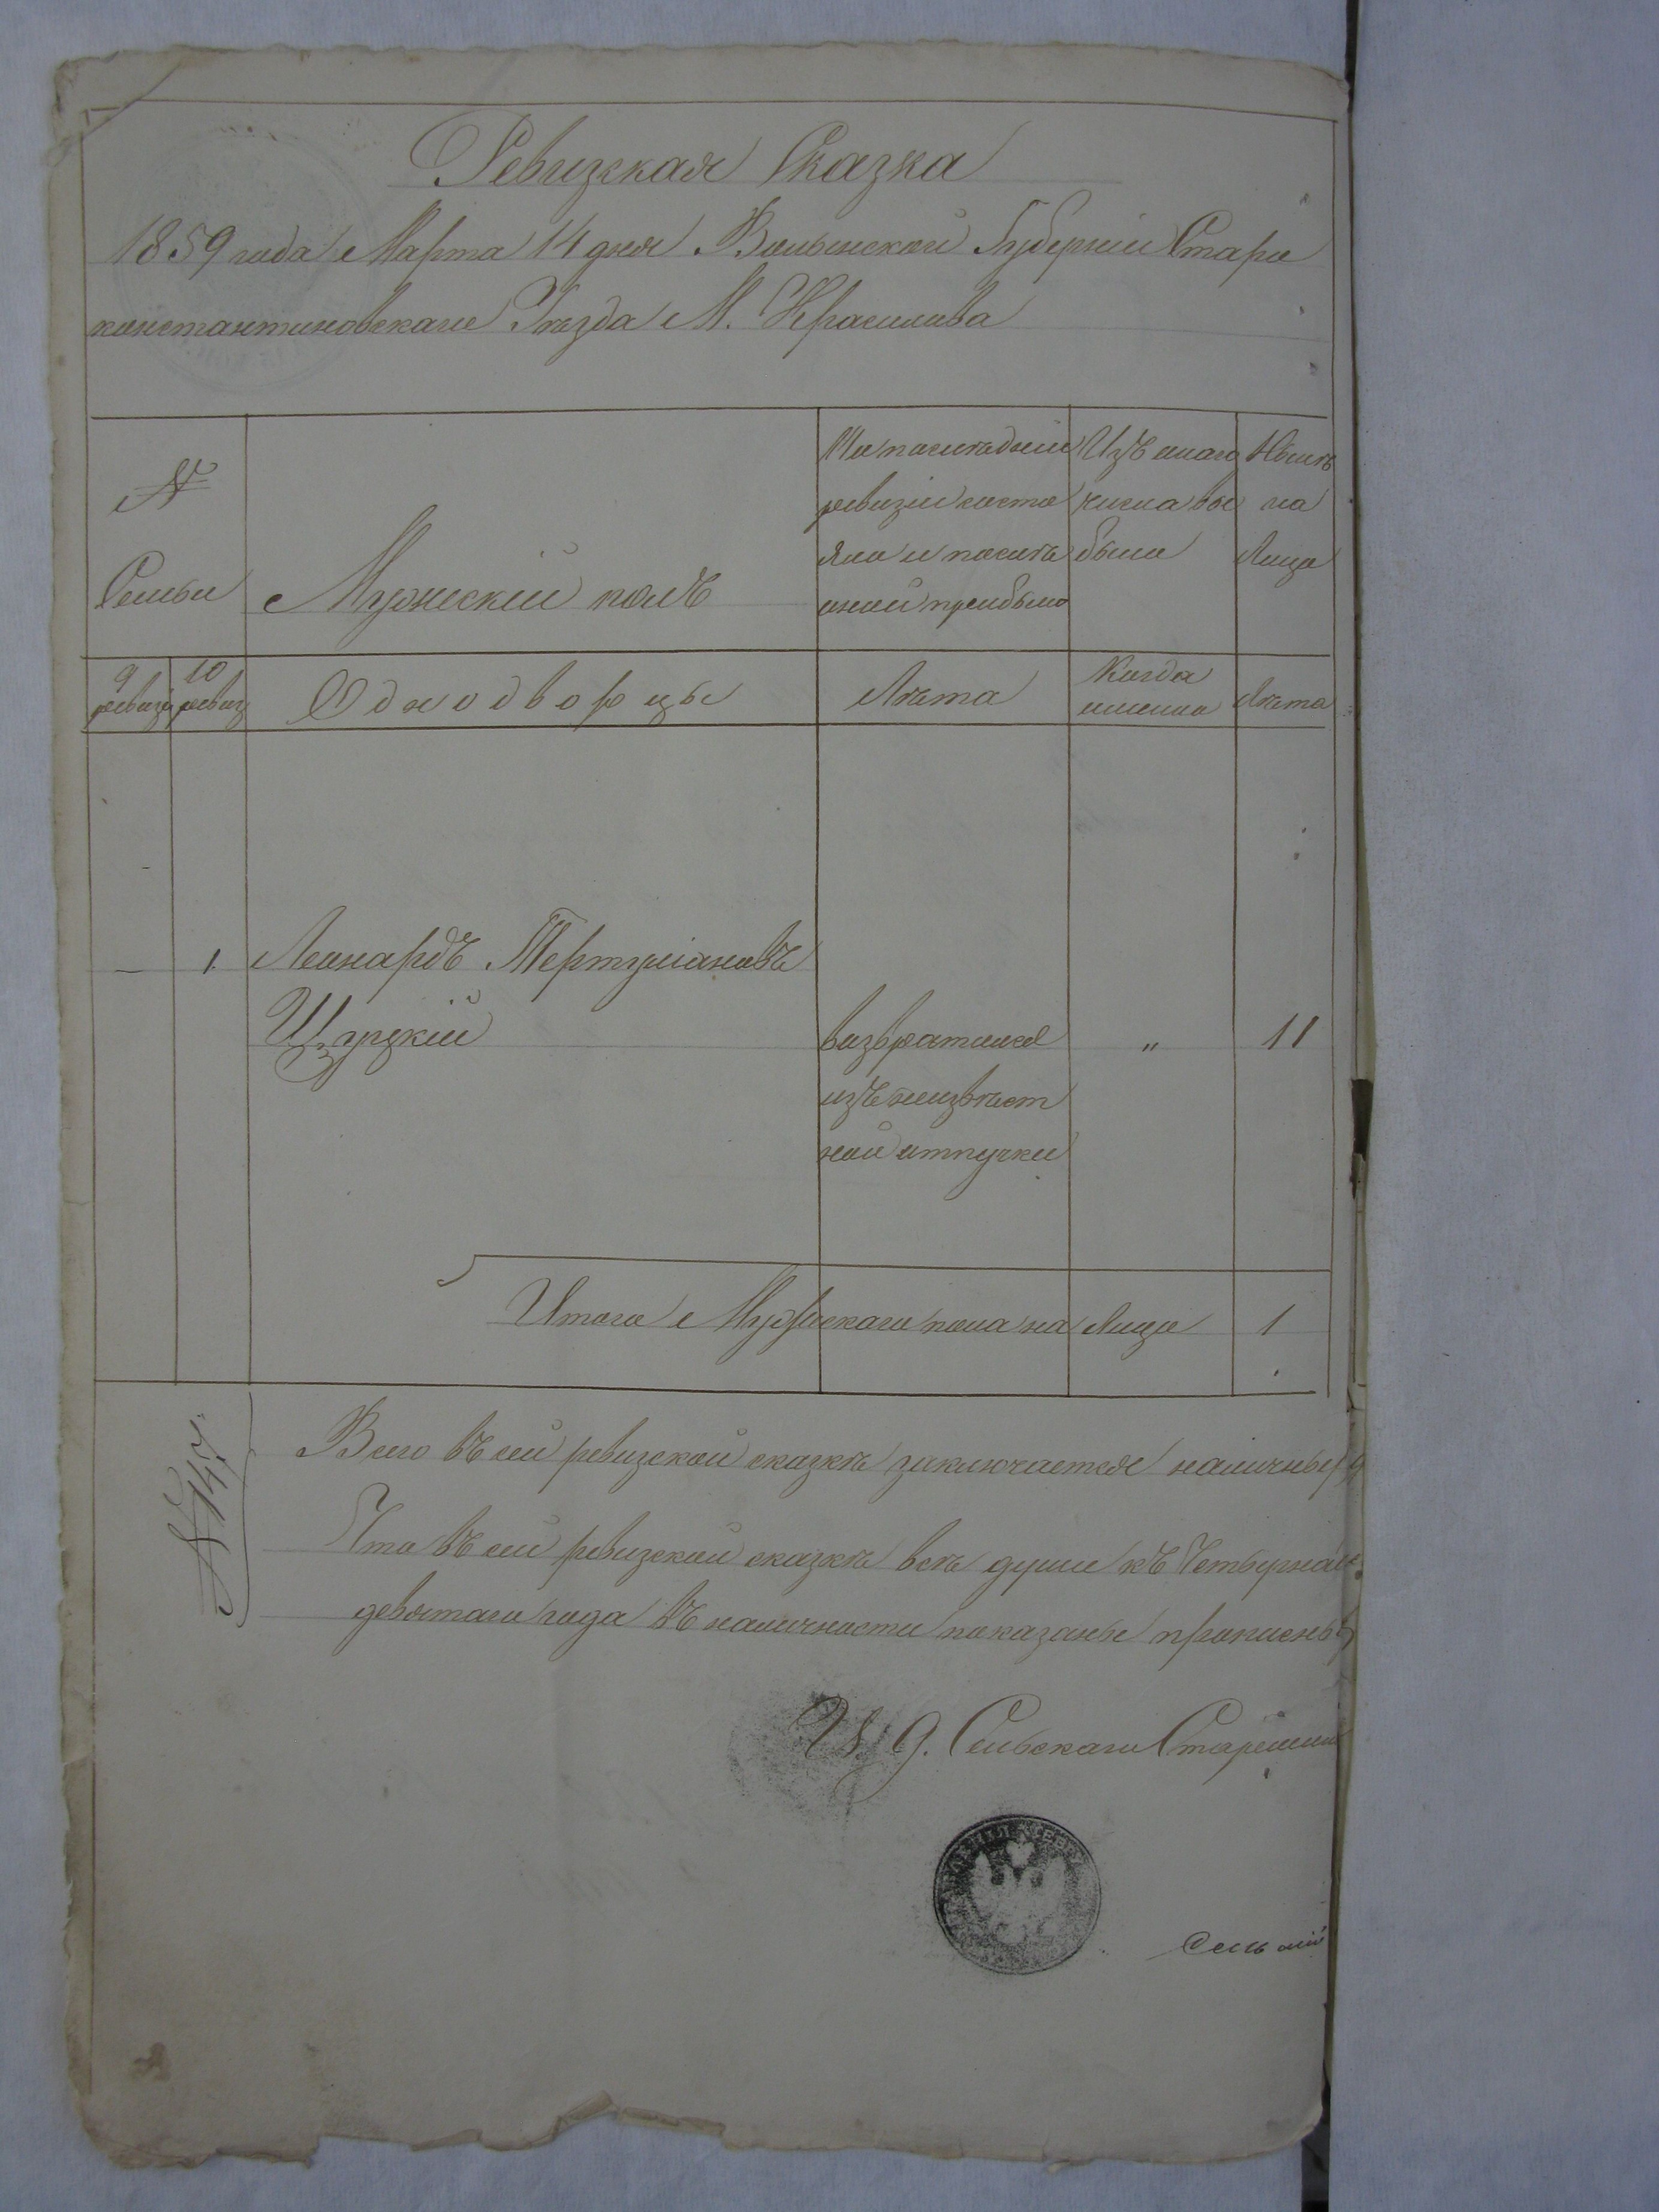 Ревизская Сказка
1859 года Марта 14 дня Волынской Губерніи Старо
константиновскаго Уѣзда М. Красилова
№
Семьи
Мужескій полъ
По послѣдней
ревизіи состо
яло и послѣ
оной прибыло
Изъ онаго
числа вы
было
Нынѣ
на
Лицо
9
ревизіи
10
ревиз
Однодворцы
Лѣта
Когда
именно
Лѣта
1. Леонардъ Тертуліановъ
возвратился " 11
изъ неизвѣст
ной отлучки
Итого Мужескаго пола на Лицо 1
№ 147
Всего въ сей ревизской сказкѣ заключается наличныхъ
Что въ сей ревизской сказкѣ всѣ души къ
девятаго года въ наличности показаны
И. Д. Сельскаго Старшины